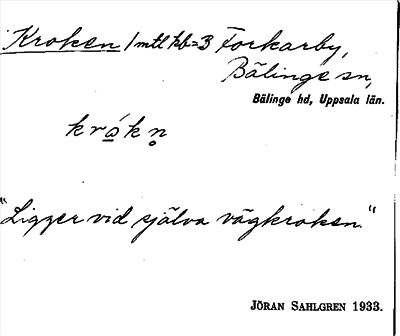 Kroken / mtl kb=3 Forkarby,
Bälinge sn,
Bälinge hd, Uppsala län.
krókn̥
"Ligger vid själva vägkroken."
JÖRAN SAHLGREN 1933.